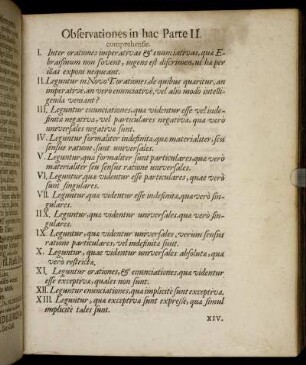 Observationes in hac Parte II.
comprehensæ.
I. Inter orationes imperativas & enunciativas, quæ E-
braismum non fovent, ingens est discrimen, ut ha per
illas exponi nequeant.
II. Leguntur in Novo T. orationes, de quibus quæritur, an
imperativè an verò enunciativè, vel alio modo intelli-
gendæ veniant?
III. Leguntur enunciationes, quæ videntur esse vel inde-
finitæ negativæ, vel particulares negativæ, quæ verò
universales negativæ sunt.
IV. Leguntur formaliter indefinita, quæ materialiter, seu
sensus ratione, sunt universales.
V. Leguntur, quæ formaliter sunt particulares, quæ verò
materialiter seu sensus ratione universales.
VI. Leguntur, quæ videntur esse particulares, quæ verò
sunt singulares.
VII. Leguntur, quæ videntur esse indefinita, quæ verò sin-
gulares.
IIX. Leguntur, quæ videntur universales, quæ verò sin-
gulares.
IX. Leguntur, quæ videntur universales, verùm sensus
ratione particulares, vel indefinitæ sunt.
X. Leguntur, quæ videntur universales absolutæ, quæ
verò restrictæ.
XI. Leguntur orationes, & enunciationes, quæ videntur
esse exceptivæ, quales non sunt.
XII. Leguntur enunciationes, quæ implicitè sunt exceptivæ.
XIII. Leguntur, quæ exceptivæ sunt expressè, quæ simul
implicitè tales sunt.
XIV.